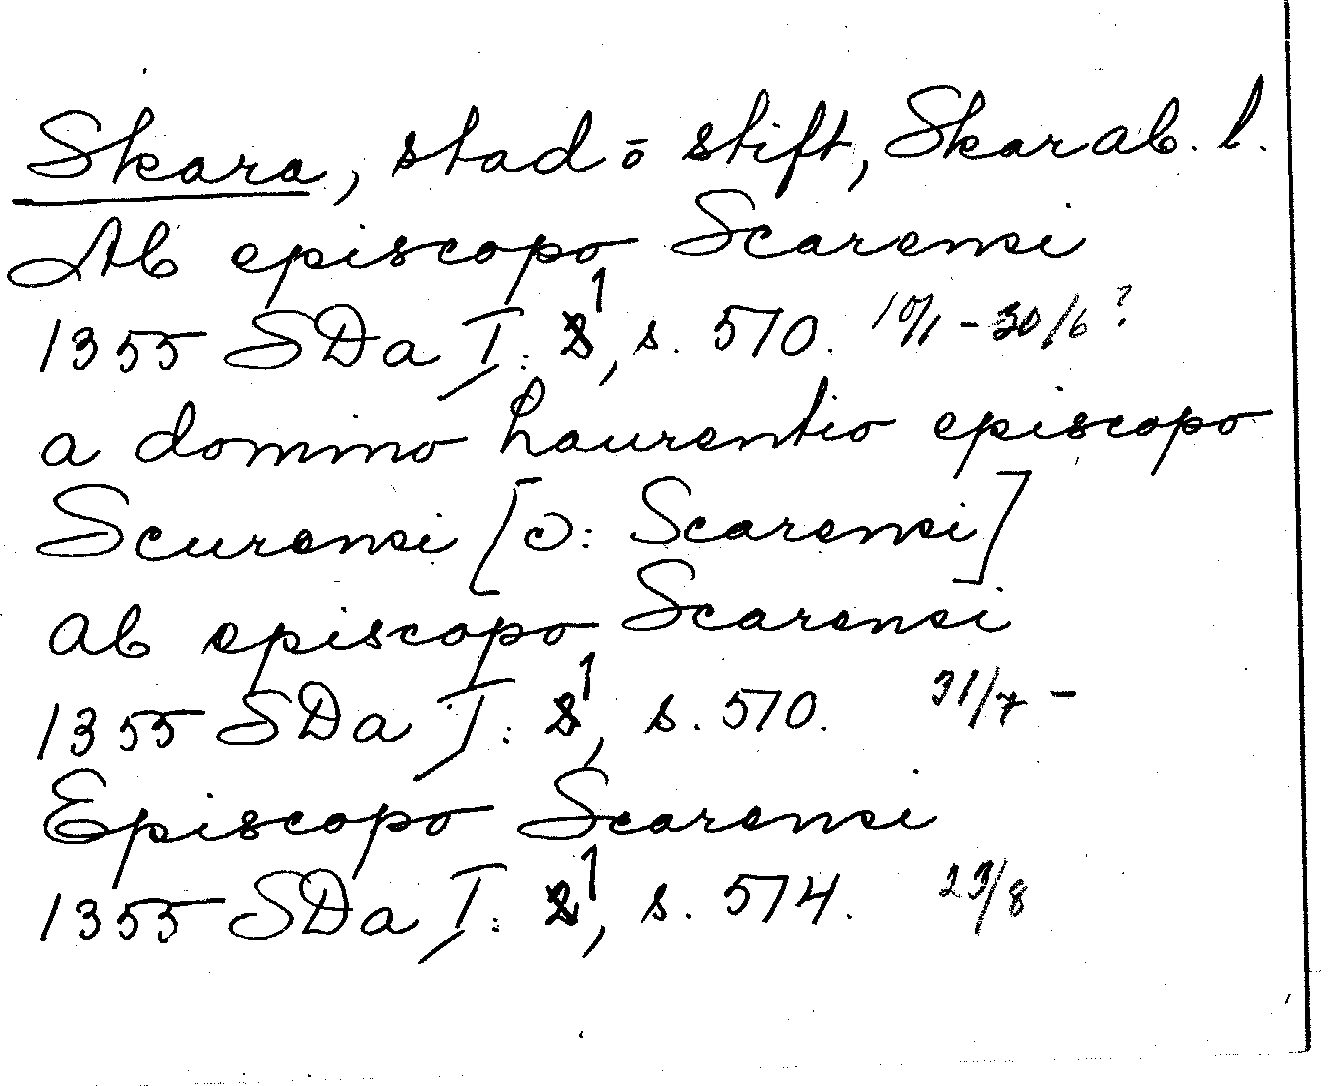 Skara, stad o stift, Skarab. l.
Ab episcopo Scarensi
1355 SDa I: 1, s. 570. 10/1 - 30/6?
a domino Laurentio episcopo
Scurensi [ɔ: Scarensi]
ab episcopo Scarensi
1355 SDa I: 1, s. 570. 31/7 -
Episcopo Scarensi
1355 SDa I: 1, s. 574. 23/8